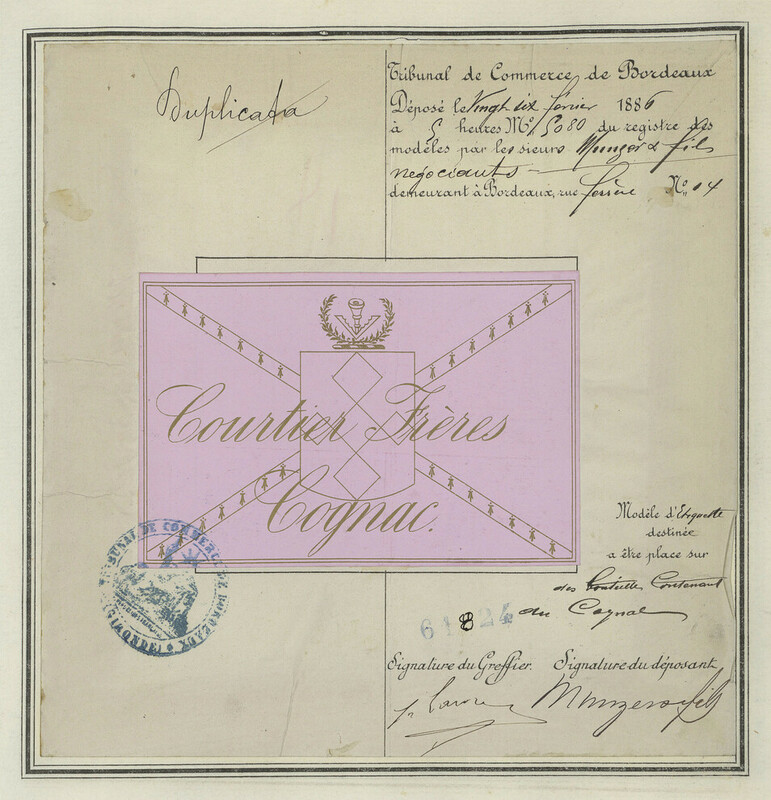 Duplicata
Tribunal de Commerce de Bordeaux
Déposé le Vingt six février 1886
à 5 heures No. 5080 du registre des
modèles par les sieurs Munzer & fils
négociants
demeurant à Bordeaux, rue ferrère No. 14
Courtier Frères
Cognac.
TRIBUNAL DE COMMERCE DE BORDEAUX
(GIRONDE)
Modèle d'Etiquette
destinée
a être place sur
des bouteille Contenant
du Cognac
61824
Signature du Greffier. Signature du déposant
Munzer & fils